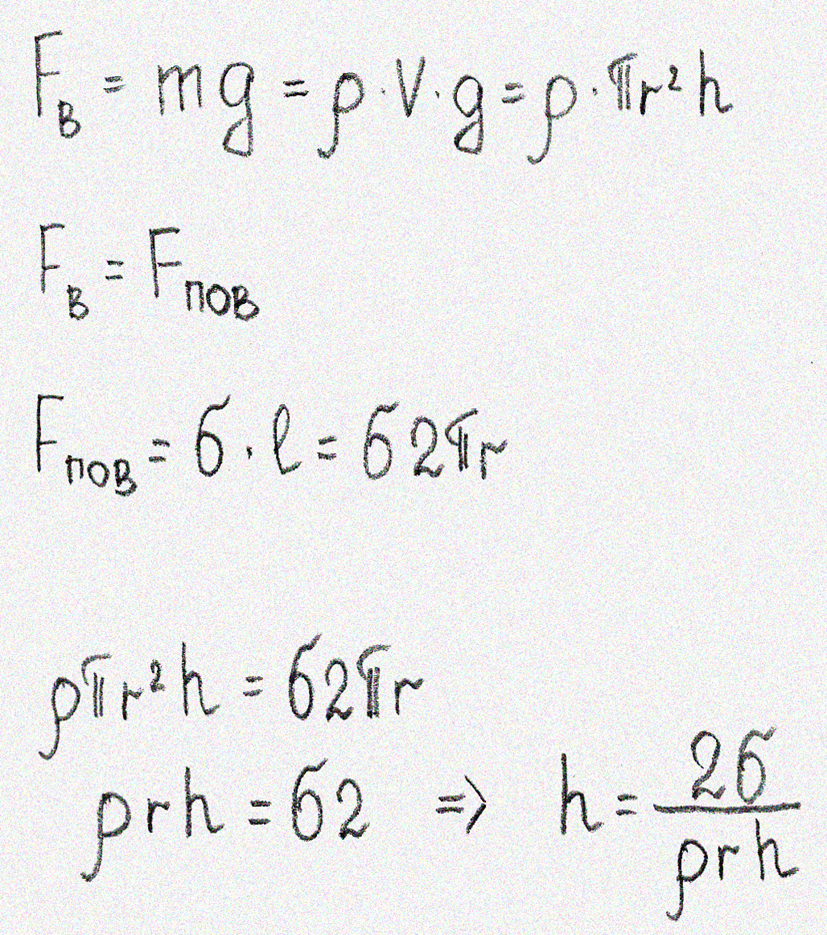 Fв = mg = ρ·V·g = ρ·πr²h
Fв = Fпов
Fпов = σ·l = σ2πr
ρπr²h = σ2πr
ρrh = σ2 => h = 2σ/ρrh